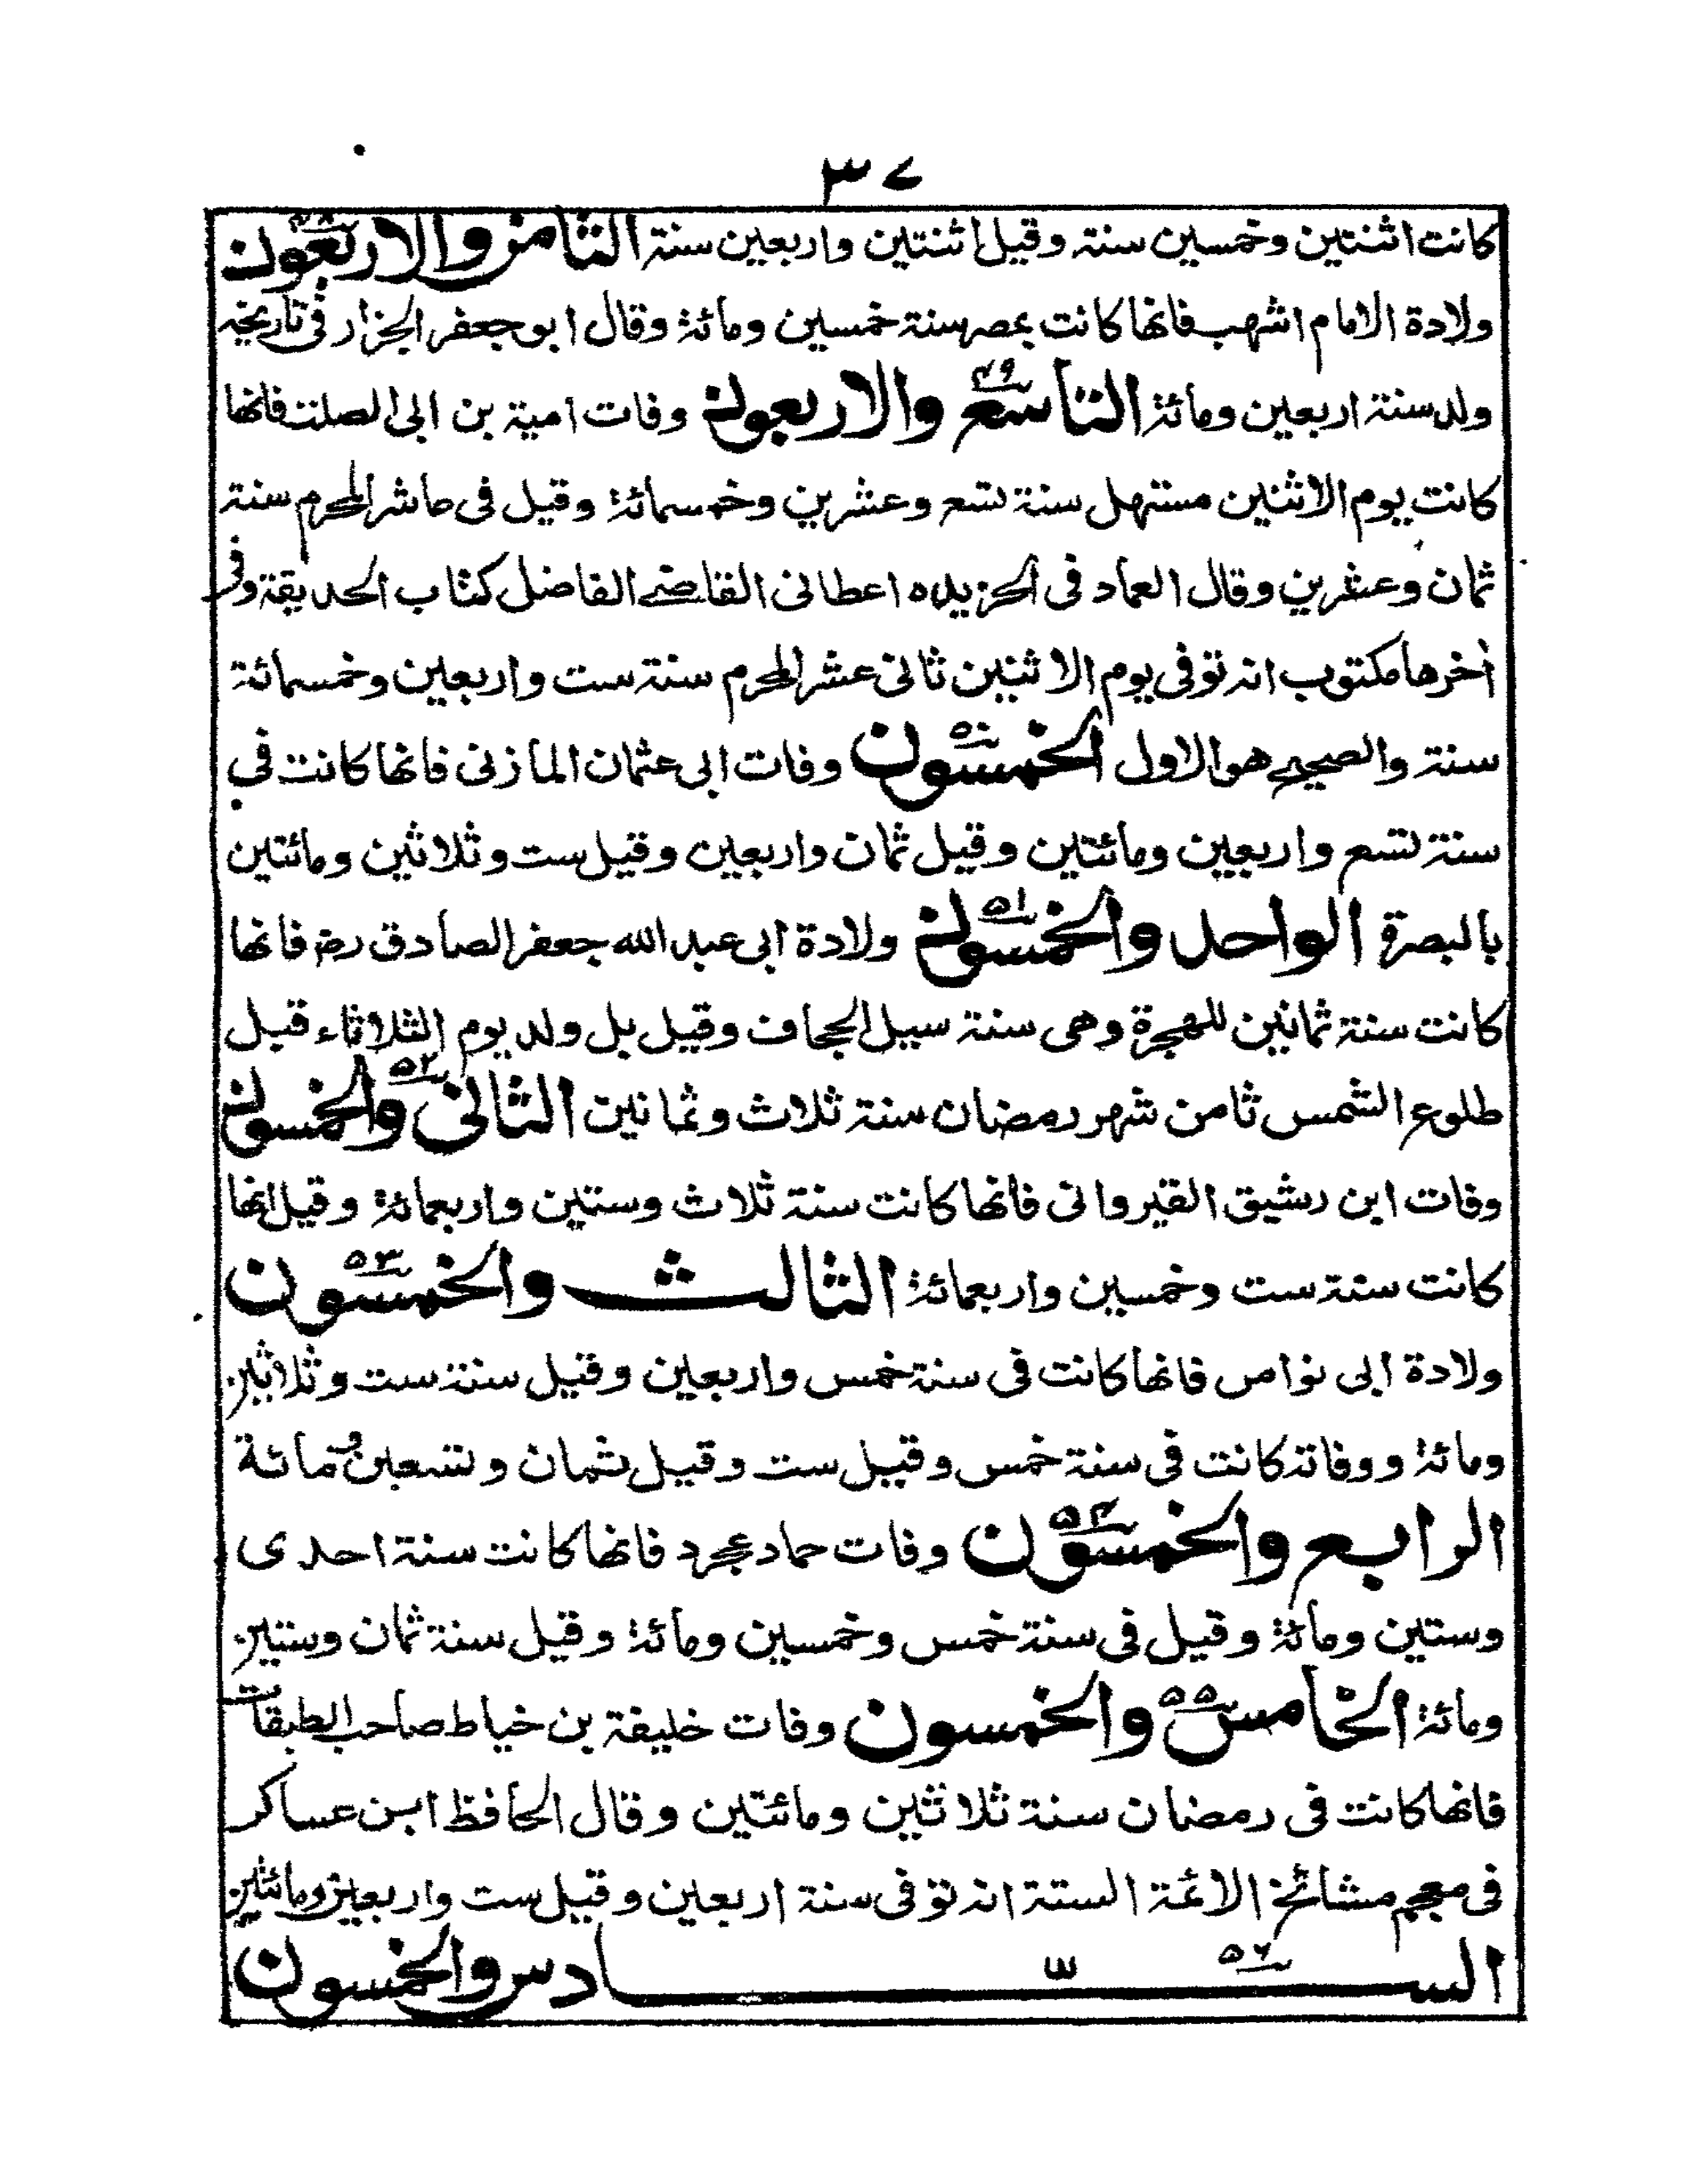 ٣٧
كانت اثنتين وخمسين سنة وقيل اثنتين واربعين سنة الثامن والاربعون ٤٨
ولادة الامام اشهب فانها كانت بمصر سنة خمسين ومائة وقال ابو جعفر الجزار فى تاريخه
ولد سنة اربعين ومائة التاسع والاربعون ٤٩ وفات امية بن ابى الصلت فانها
كانت يوم الاثنين مستهل سنة تسع وعشرين وخمسمائة وقيل فى عاشر المحرم سنة
ثمان وعشرين وقال العماد فى الخزيده اعطانى القاضے الفاضل كتاب الحديقة وفى
أخرها مكتوب انه توفى يوم الاثنين ثانى عشر المحرم سنة ست واربعين وخمسمائة
سنة والصحيح هو الاول الخمسون ٥٠ وفات ابى عثمان المازنى فانها كانت فى
سنة تسع واربعين ومائتين وقيل ثمان واربعين وقيل ست وثلاثين ومائتين
بالبصرة الواحد والخمسون ٥١ ولادة ابى عبد الله جعفر الصادق رض فانها
كانت سنة ثمانين للهجرة وهى سنة سيل الحجاف وقيل بل ولد يوم الثلاثاء قبل
طلوع الشمس ثامن شهر رمضان سنة ثلاث وثمانين الثانى والخمسون ٥٢
وفات ابن رشيق القيروانى فانها كانت سنة ثلاث وستين واربعمائة وقيل انها
كانت سنة ست وخمسين واربعمائة الثالث والخمسون ٥٣
ولادة ابى نواس فانها كانت فى سنة خمس واربعين وقيل سنة ست وثلاثين
ومائة ووفاته كانت فى سنة خمس وقيل ست وقيل ثمان وتسعين ومائة
الرابع والخمسون ٥٤ وفات حماد عجرد فانها كانت سنة احدى
وستين ومائة وقيل فى سنة خمس وخمسين ومائة وقيل سنة ثمان وستين
ومائة الخامس والخمسون ٥٥ وفات خليفة بن خياط صاحب الطبقات
فانها كانت فى رمضان سنة ثلاثين ومائتين وقال الحافظ ابن عساكر
فى معجم مشائخ الائمة الستة انه توفى سنة اربعين وقيل ست واربعين ومائتين
السادس والخمسون ٥٦